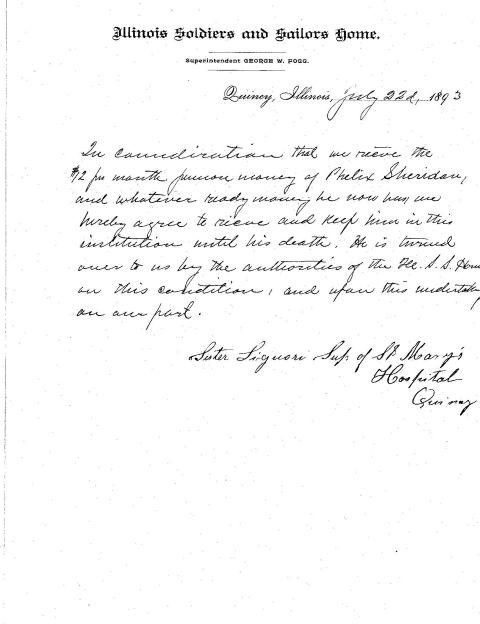 Illinois Soldiers and Sailors Home.
Superintendent GEORGE W. FOGG.
Quincy, Illinois, July 22d, 1893
In consideration that we recieve the
$12 per month pension money of Phelix Sheridan,
and whatever ready money he now has, we
hereby agree to recieve and keep him in this
institution until his death. He is turned
over to us by the authorities of the Ill. S. S. Home
on this condition, and upon this undertaking
on our part.
Sister Liguori Sup. of St Mary's
Hospital
Quincy